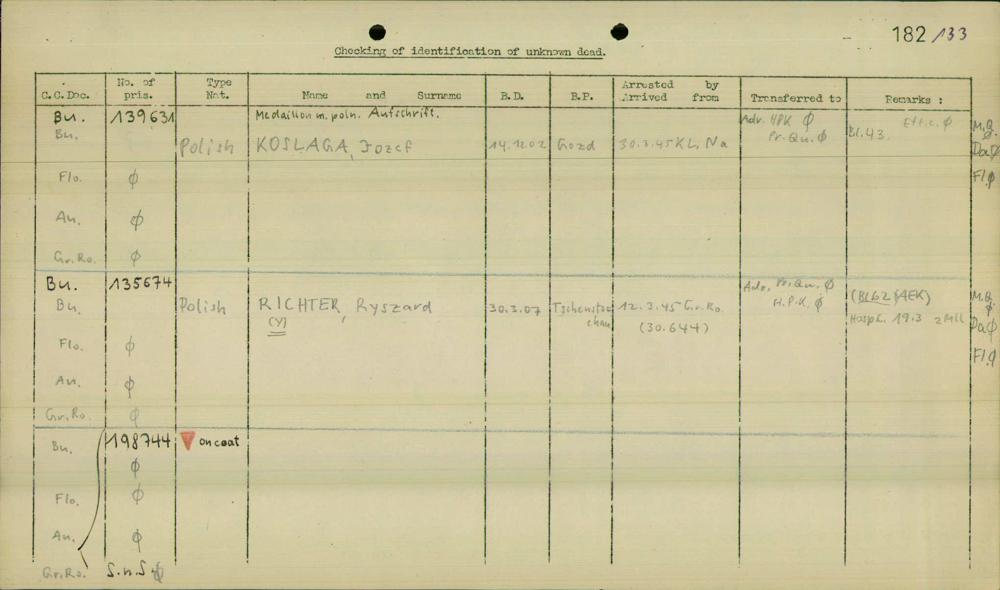 182/133
Checking of identification of unknown dead.
C.C.Doc. No. of pris. Type Nat. Name and Surname B.D. B.P. Arrested by Arrived from Transferred to Remarks :
Bu. 139631 Medaillon m. poln. Aufschrift. Adr. HPK ϕ Effic. ϕ M.Q. ϕ
Bu. Polish KOSLAGA, Jozef 14.12.02 Gozd 30.3.45 KL. Na Pr.Qu. ϕ Bl.43. Da ϕ
Flo. ϕ Fl. ϕ
An. ϕ
Gr.Ro. ϕ
Bu. 135674 Adr. Pr.Qu. ϕ M.Q. ϕ
Bu. Polish RICHTER, Ryszard 30.3.07 Tschenstochau 12.3.45 Gr.Ro. H.P.K. ϕ (Bl.62 / AEK)
(Y) (30.644) Hospt. 19.3 Da ϕ
Flo. ϕ Fl. ϕ
An. ϕ
Gr.Ro. ϕ
Bu. 198744 on coat
ϕ
Flo. ϕ
An. ϕ
Gr.Ro. S.n.S ϕ